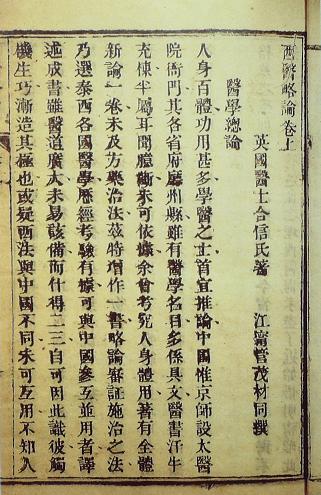 西醫略論卷上
英國醫士合信氏著　江甯管茂材同撰
醫學總論
人身百體功用甚多學醫之士首宜推論中國惟京師設太醫
院衙門其各省府廳州縣雖有醫學名目多係具文醫書汗牛
充棟半屬耳聞臆斷未可依據余曾考究人身體用著有全體
新論一卷未及方藥治法茲特增作一書略論審証施治之法
乃選泰西各國醫學歷經考驗有據可與中國參互並用者譯
述成書雖醫道廣大未易該備而什得二三自可因此識彼觸
機生巧漸造其極也或疑西法與中國不同未可互用不知人